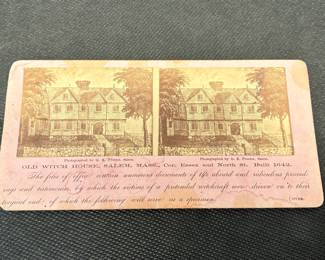 Photographed by G. K. Proctor, Salem. Photographed by G. K. Proctor, Salem.
OLD WITCH HOUSE, SALEM, MASS., Cor. Essex and North St. Built 1642.
The files of office contain numerous documents of the absurd and ridiculous proceed-
ings and testimonies, by which the victims of a pretended witchcraft were driven on to their
tragical end, of which the following will serve as a specimen.